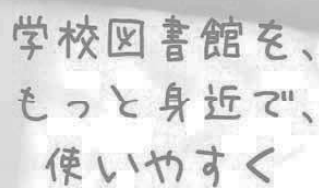 学校図書館を、
もっと身近で、
使いやすく